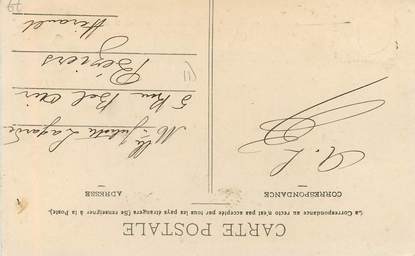 CARTE POSTALE
La Correspondance au recto n'est pas acceptée par tous les pays étrangers (Se renseigner à la Poste).
CORRESPONDANCE
ADRESSE
A. L.
Mlle Juliette Lagarde
5 Rue Bel Air
Béziers
(11)
Hérault